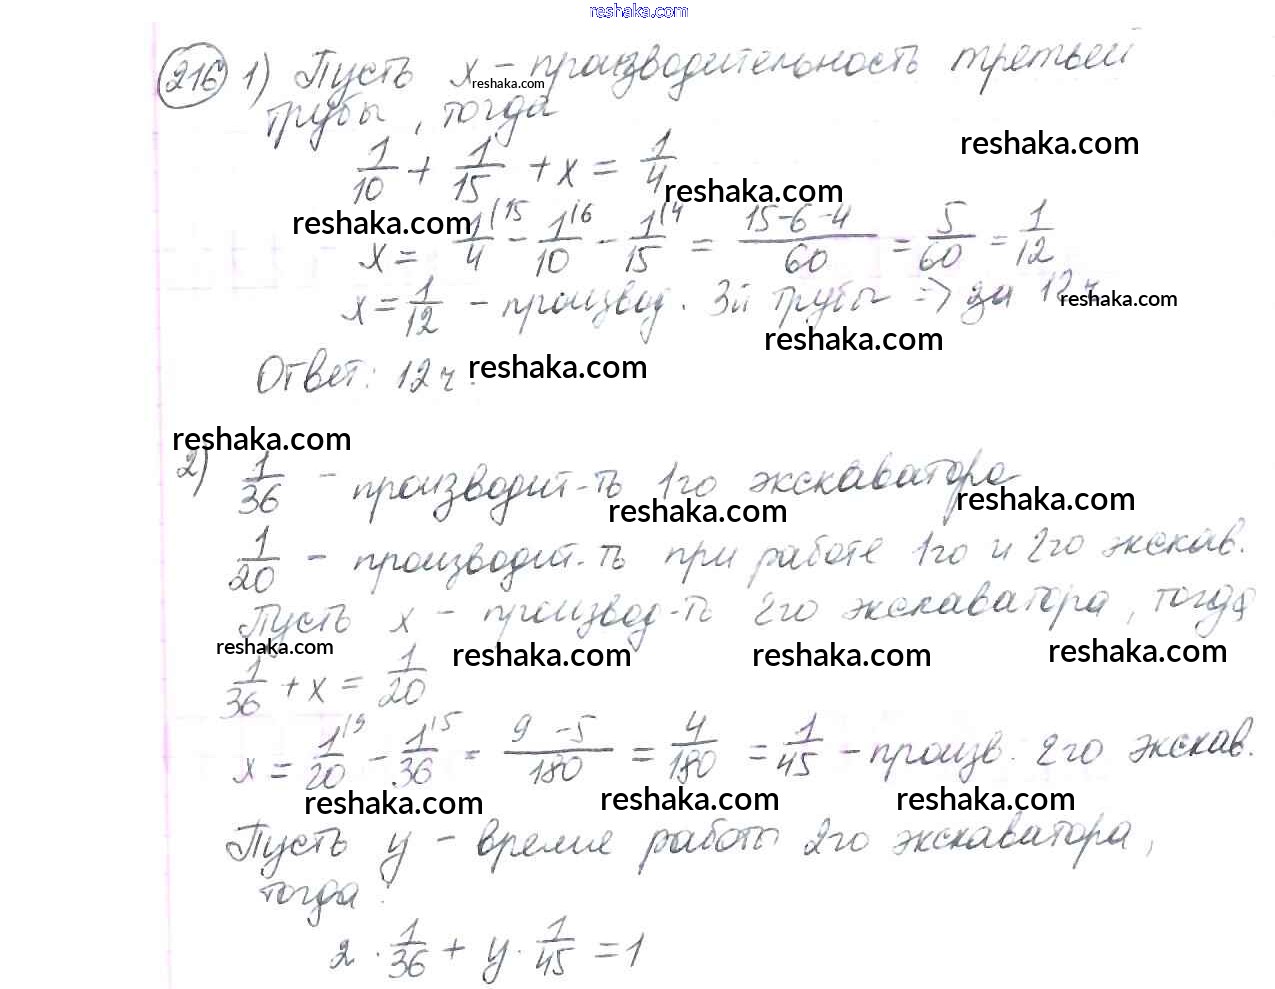 reshaka.com
216 1) Пусть x – производительность третьей
reshaka.com
трубы, тогда
1/10 + 1/15 + x = 1/4
reshaka.com
reshaka.com
reshaka.com
x = 1/4 (15 - 1/10 (6 - 1/15 (4 = 15-6-4/60 = 5/60 = 1/12
x = 1/12 – производ. 3й трубы => за 12 ч
reshaka.com
reshaka.com
Ответ: 12 ч.
reshaka.com
reshaka.com
2) 1/36 – производит-ть 1го экскаватора
reshaka.com
reshaka.com
1/20 – производит-ть при работе 1го и 2го экскав.
Пусть x – производ-ть 2го экскаватора, тогда
reshaka.com
reshaka.com
reshaka.com
reshaka.com
1/36 + x = 1/20
x = 1/20 (9 - 1/36 (5 = 9-5/180 = 4/180 = 1/45 – произв. 2го экскав.
reshaka.com
reshaka.com
reshaka.com
Пусть y – время работы 2го экскаватора,
тогда:
2 · 1/36 + y · 1/45 = 1